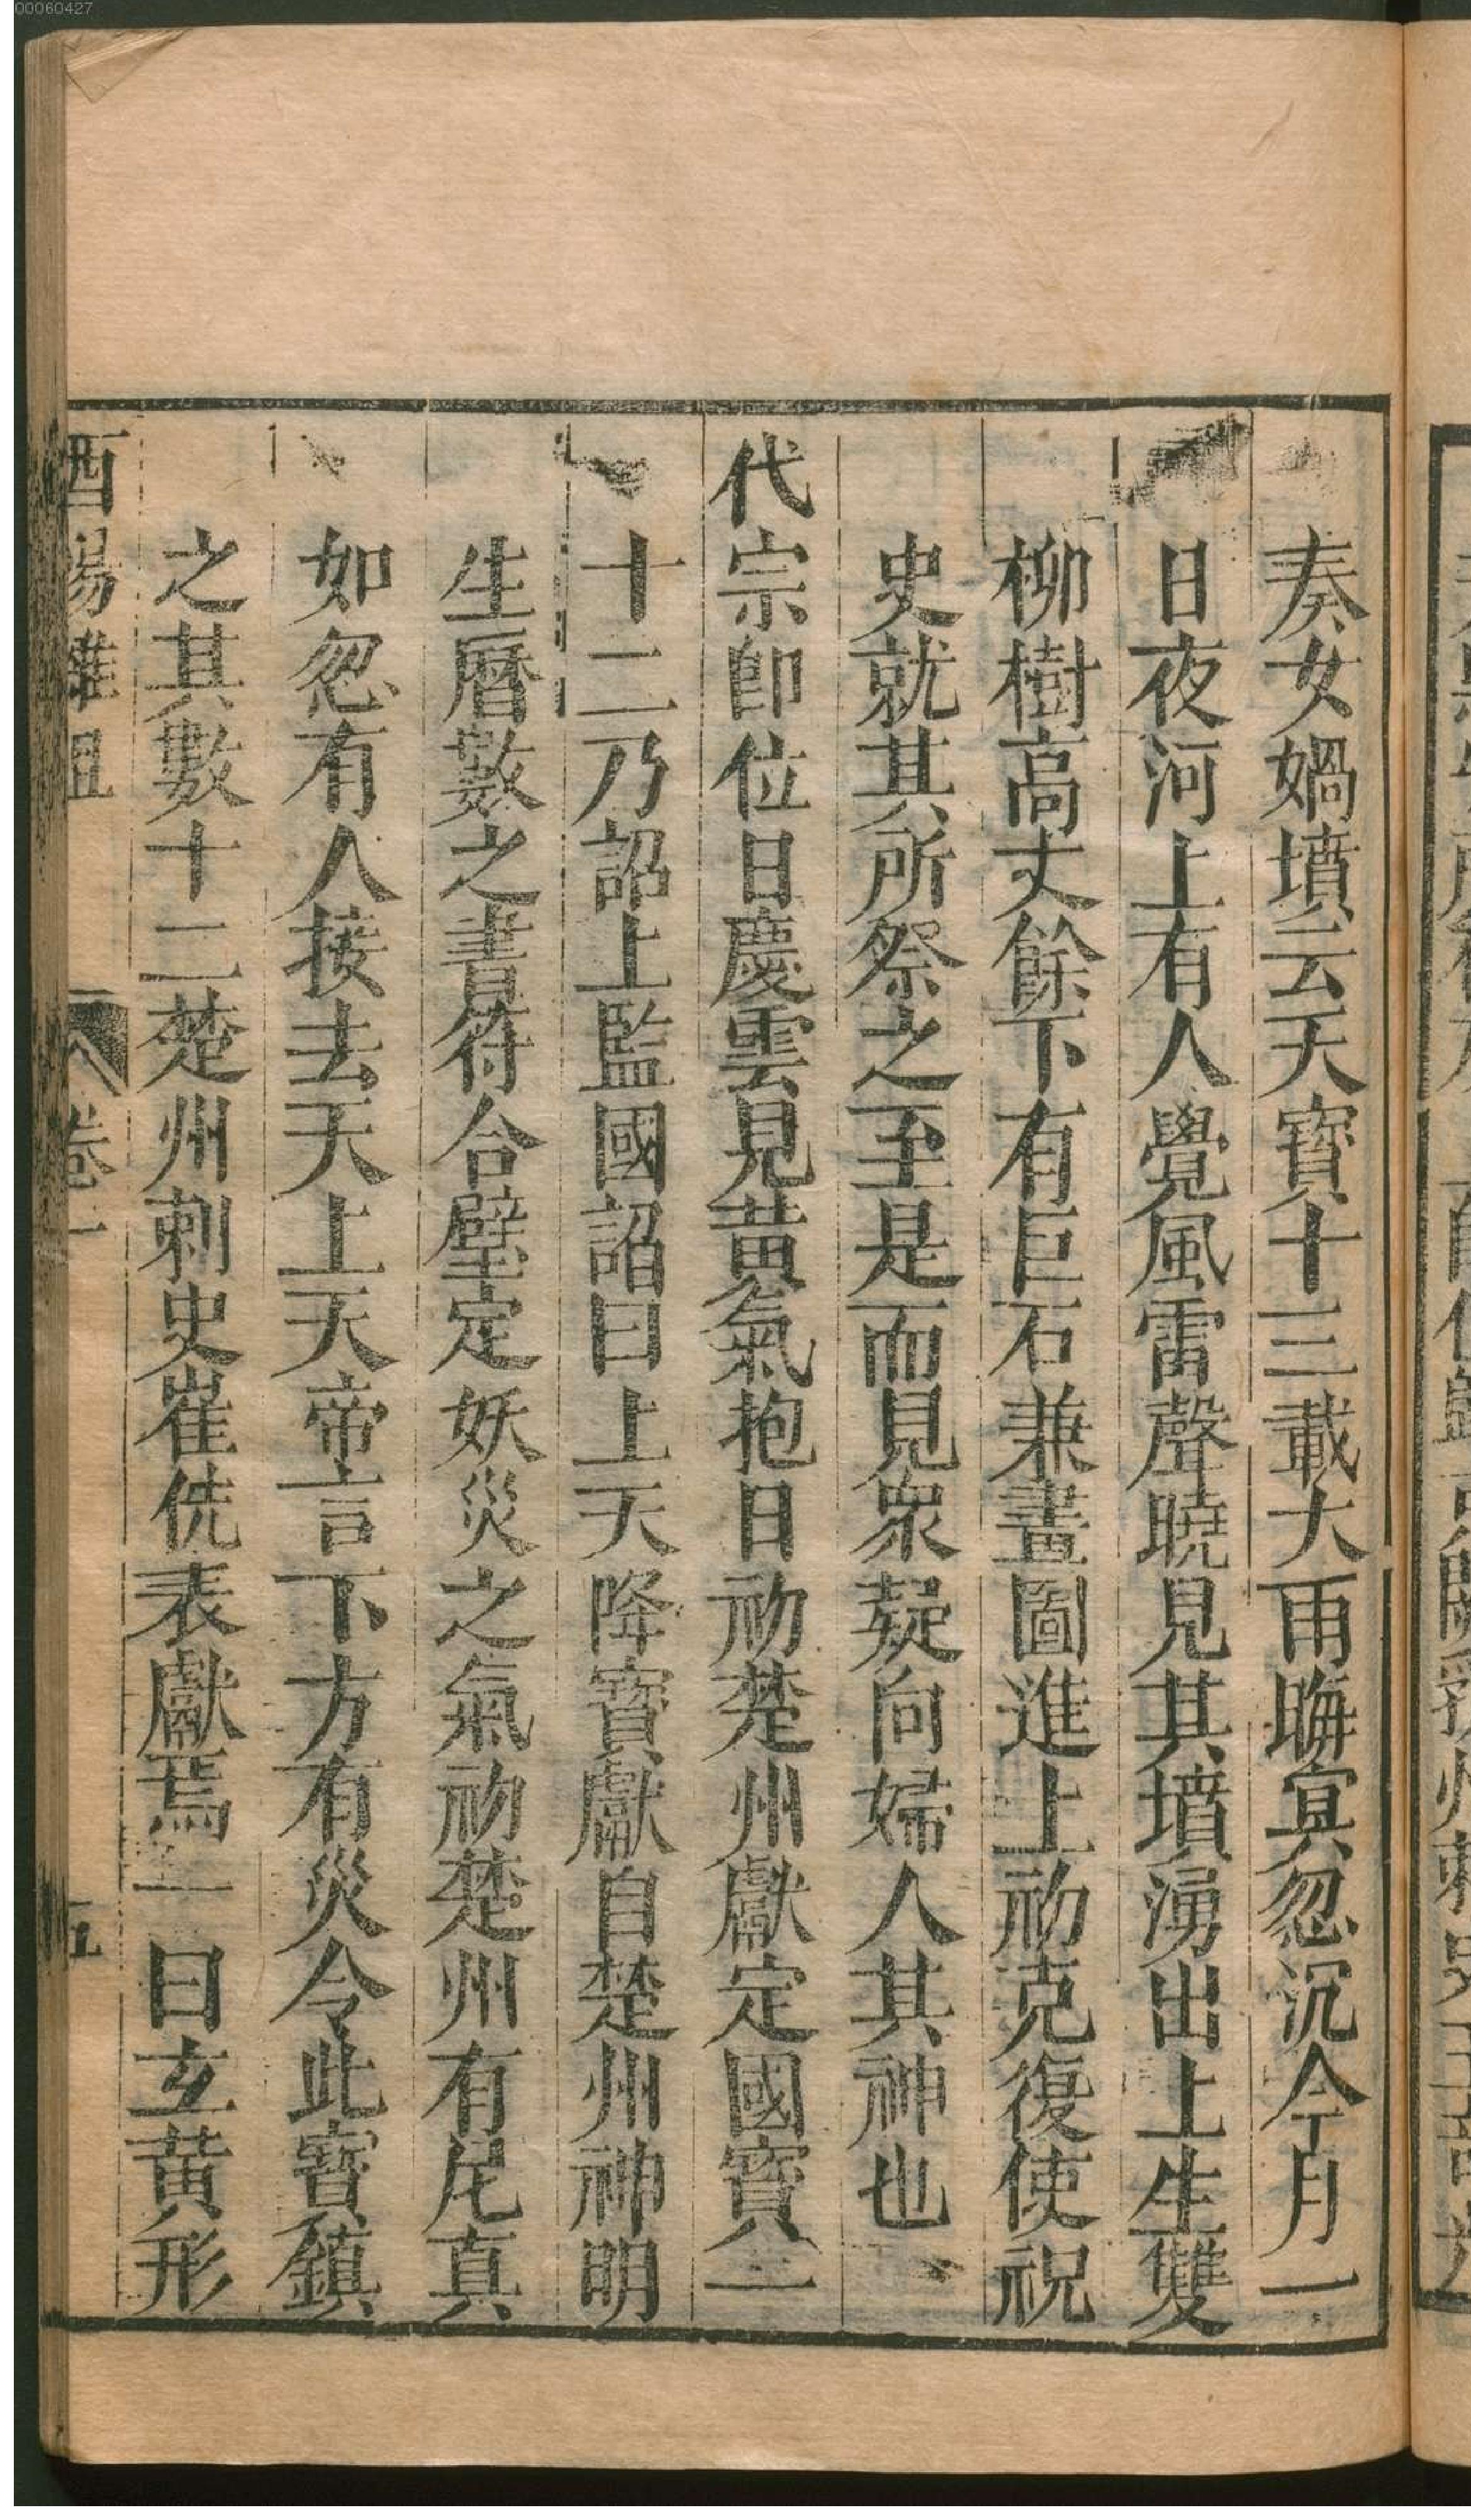 奏女媧墳云天寶十三載大雨晦冥忽沉今月一
日夜河上有人覺風雷聲曉見其墳湧出上生雙
柳樹高丈餘下有巨石兼畫圖進上初克復使祝
史就其所祭之至是而見衆疑向婦人其神也
代宗卽位日慶雲見黃氣抱日初楚州獻定國寶一
十二乃詔上監國詔曰上天降寶獻自楚州神明
生曆數之書符合璧定妖災之氣初楚州有尼真
如忽有人接去天上天帝言下方有災令此寶鎮
之其數十二楚州刺史崔侁表獻焉一曰玄黃形
酉陽雜俎 卷一 五
00060427